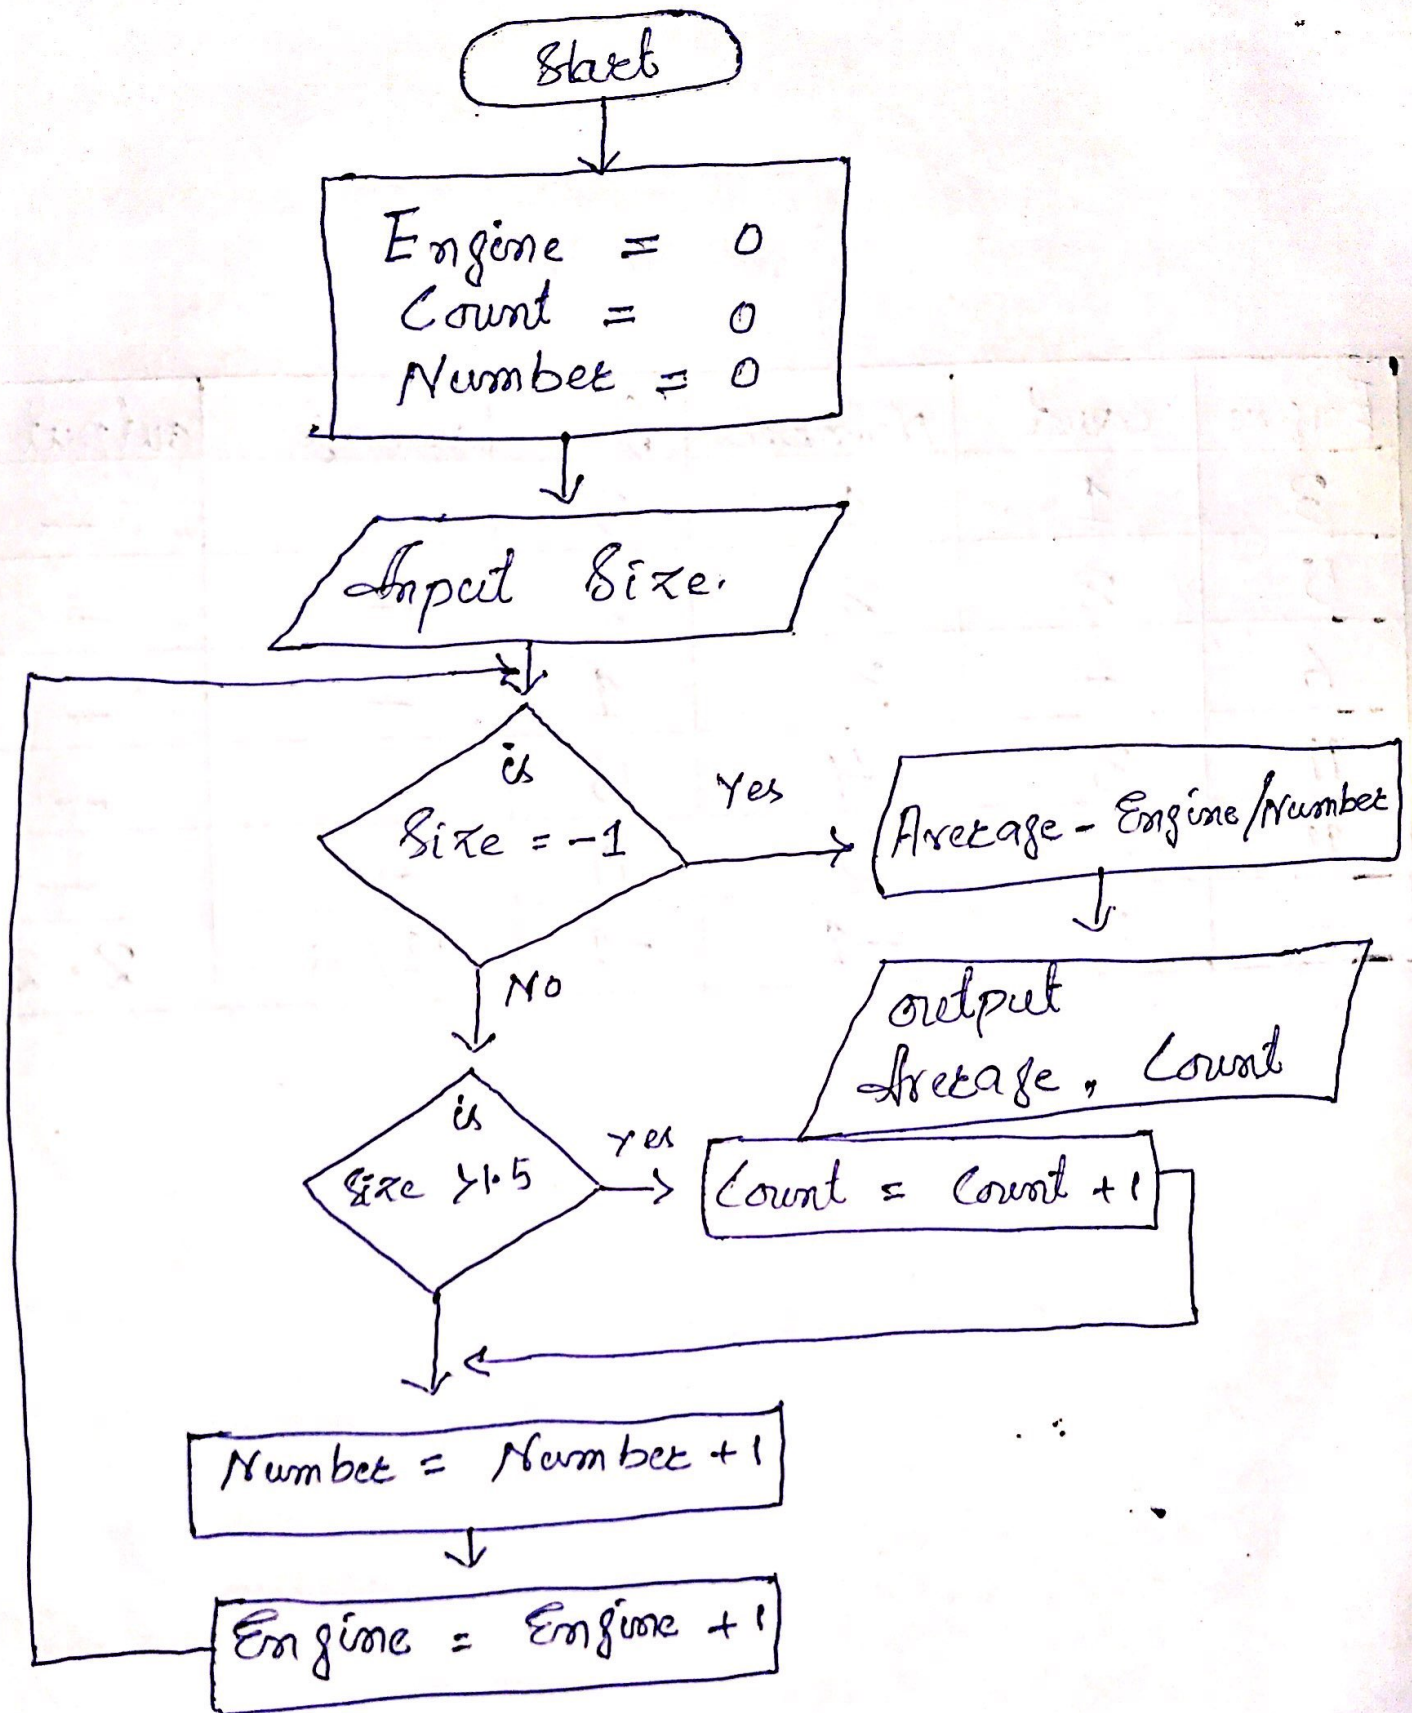 Start
Engine = 0
Count = 0
Number = 0
Input Size.
is
Size = -1
Yes
Average - Engine/Number
No
output
Average, Count
is
Size >1.5
yes
Count = Count +1
Number = Number +1
Engine = Engine +1